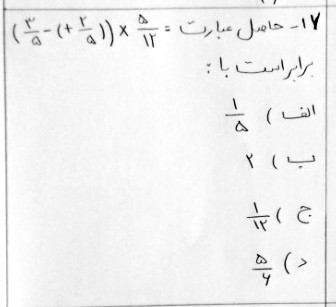 ۱۷- حاصل عبارت = (۳/۵ - (+۲/۵)) × ۵/۱۲
برابر است با :
الف ) ۱/۵
ب ) ۲
ج ) ۱/۱۲
د ) ۵/۶